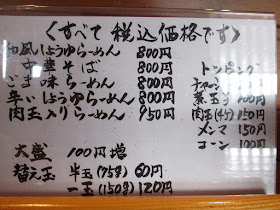 〈すべて税込価格です〉
和風しょうゆらーめん 800円
中華そば 800円
ごま味らーめん 800円
辛いしょうゆらーめん 800円
肉玉入りらーめん 950円
大盛 100円増
替え玉 半玉(75g) 60円
一玉(150g) 120円
トッピング
チャーシュー
煮玉子 100円
肉玉(4ケ) 150円
メンマ 150円
コーン 100円